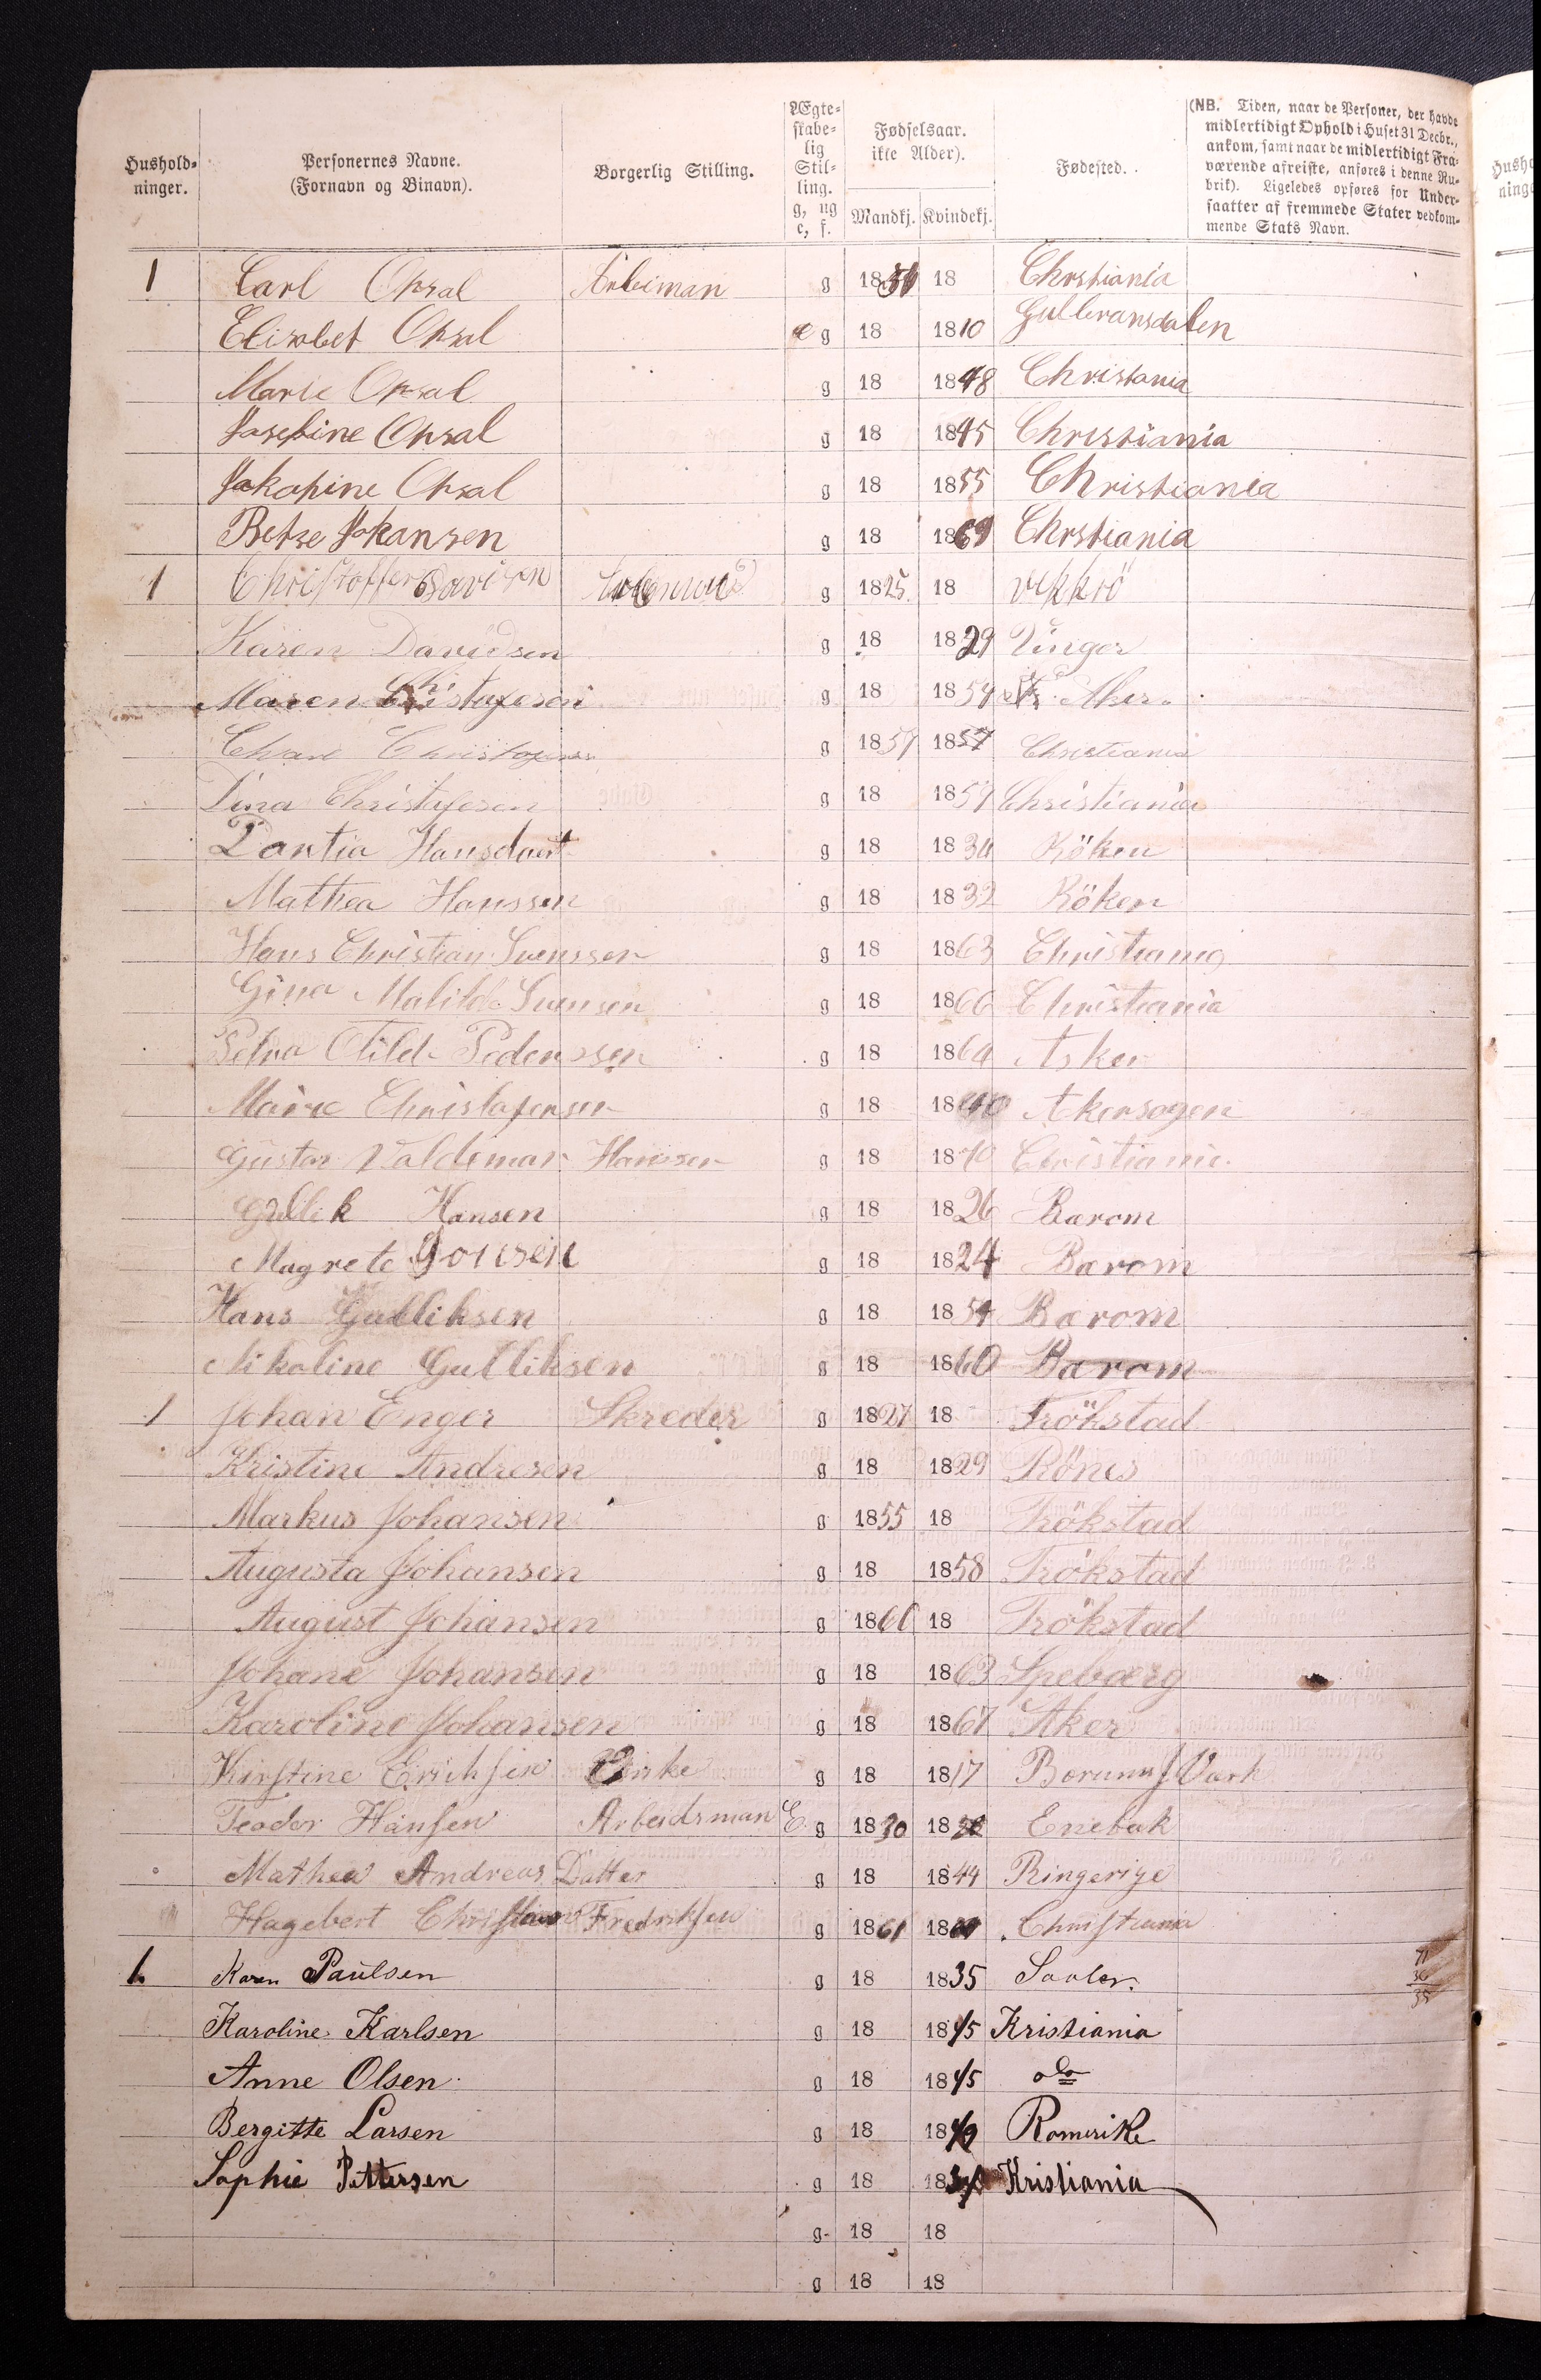 Hushold-
ninger.
Personernes Navne.
(Fornavn og Binavn).
Borgerlig Stilling.
Ægte-
skabe-
lig
Stil-
ling.
g, ug
e, f.
Fødselsaar.
ikke Alder).
Mandkj. Kvindekj.
Fødested.
(NB. Tiden, naar de Personer, der havde
midlertidigt Ophold i Huset 31 Decbr.,
ankom, samt naar de midlertidigt Fra-
værende afreiste, anføres i denne Ru-
brik). Ligeledes opføres for Under-
saatter af fremmede Stater vedkom-
mende Stats Navn.
1 Carl Opsal Arbeiman g 18 18 Chrstiania
Elisabet Opsal e g 18 1810 Gulbransdalen
Marie Opsal g 18 1848 Christania
Josefine Opsal g 18 1845 Christiania
Jakopine Opsal g 18 1855 Christiania
Betze Johansen g 18 1869 Chrstiania
1 Christoffer Davisen g 1825 18
Karen Davidsen g 18 1829 Vinger
Maren Christofersen g 18 1854 Aker
Christofersen g 1857 1857 Christiania
Dina Christofersen g 18 1859 Christiania
Dortia Hansdatt g 18 1834 Röken
Mathea Hanssen g 18 1832 Röken
Hans Christian Svenssen g 18 1863 Christiania
Gina Matilde Svensen g 18 1866 Christiania
Petra Otilde Pederssen g 18 1864 Asker
Marie Christofersen g 18 1840 Akersogen
Gustav Valdemar Hanssen g 18 1870 Christiania
Gullik Hansen g 18 1826 Barom
Magrete Jonsen g 18 1824 Barom
Hans Gulliksen g 18 1854 Barom
Nikoline Gulliksen g 18 1860 Barom
1 Johan Enger Skreder g 1827 18 Trökstad
Kristine Andresen g 18 1829 Rönes
Markus Johansen g 1855 18 Trökstad
Augusta Johansen g 18 1858 Trökstad
August Johansen g 1860 18 Trökstad
Johane Johansen g 18 1863 Speberg
Karoline Johansen g 18 1867 Aker
Kirstine Erichsen Enke g 18 1817 Borums Værk
Teodor Hansen Arbeidsman E. g 1830 18 Enebak
Mathea Andreas Datter g 18 1844 Ringerige
Hagebert Christian Fredriksen g 1861 18 Christiania
1. Karen Paulsen g 18 1835 Saaler.
71
36
35
Karoline Karlsen g 18 1845 Kristiania
Anne Olsen g 18 1845 do
Bergitte Larsen g 18 1849 Romerike
Sophie Pettersen g 18 18 Kristiania
g 18 18
g 18 18